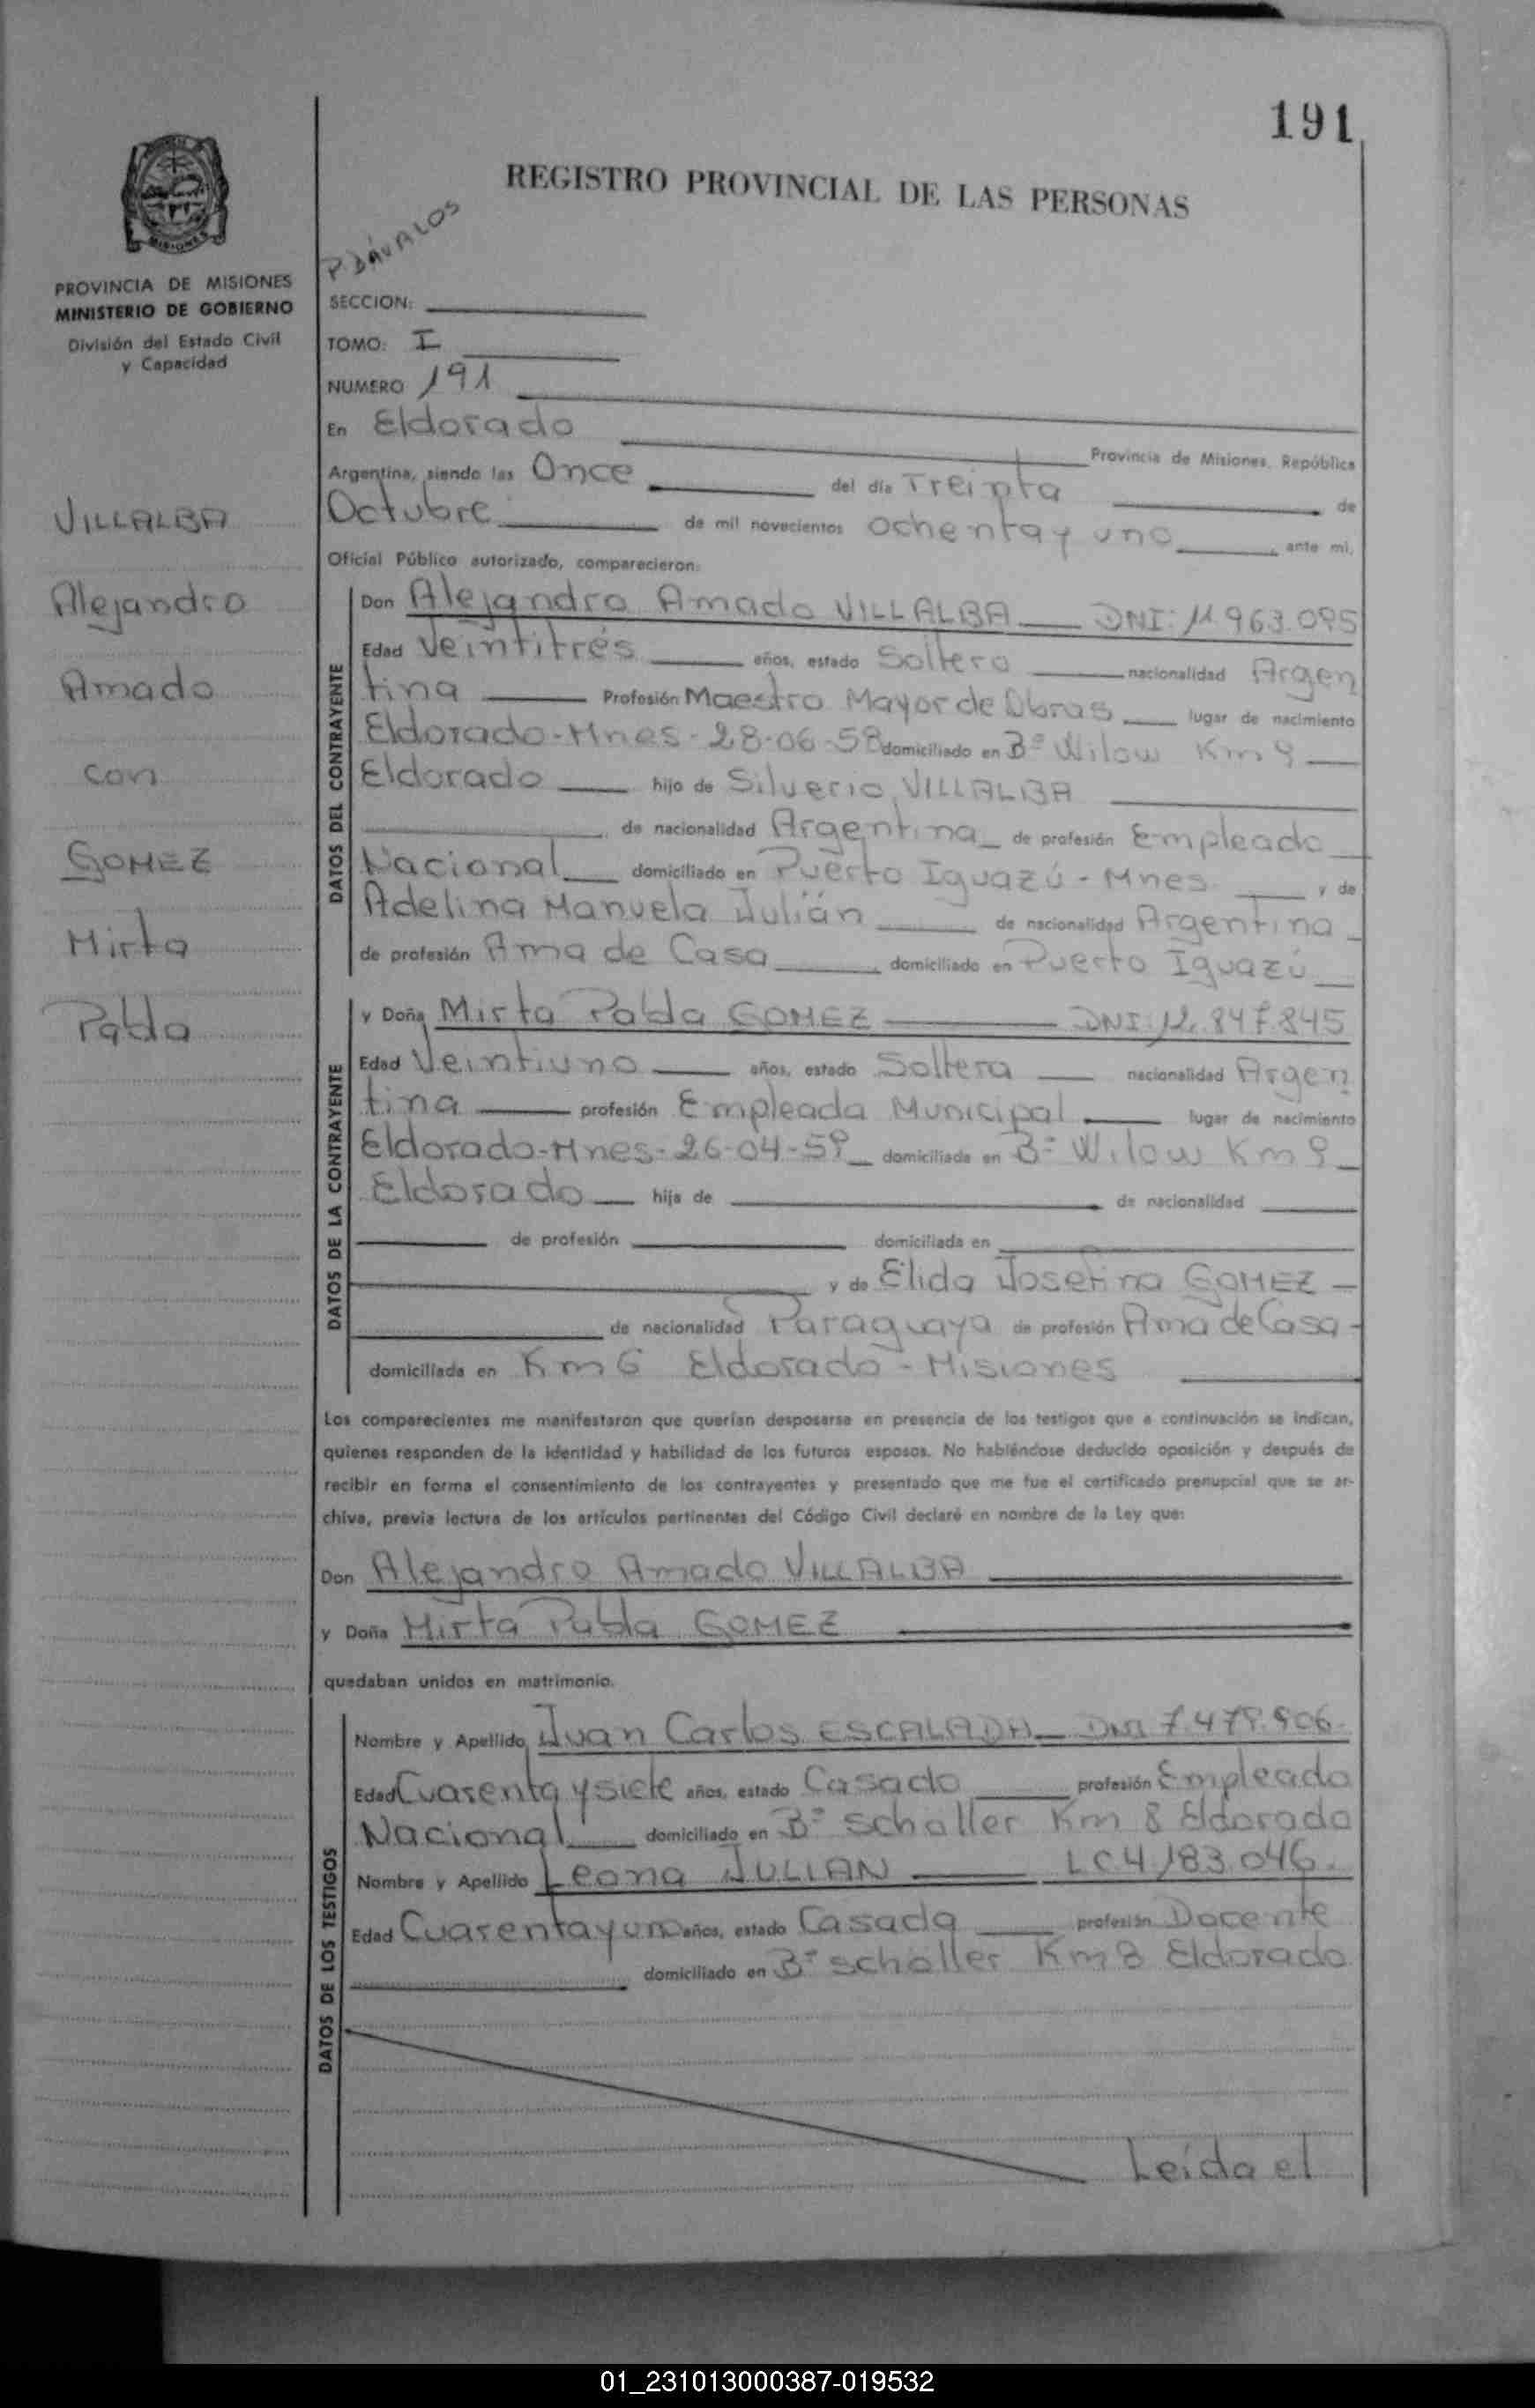 191
REGISTRO PROVINCIAL DE LAS PERSONAS
MISIONES
PROVINCIA DE MISIONES
MINISTERIO DE GOBIERNO
División del Estado Civil
y Capacidad
VILLALBA
Alejandro
Amado
con
GOMEZ
Mirta
Pabla
P. DÁVALOS
SECCION:
TOMO: I
NUMERO 191
En Eldorado Provincia de Misiones, República
Argentina, siendo las Once del día Treinta de
Octubre de mil novecientos ochenta y uno ante mi,
Oficial Público autorizado, comparecieron:
DATOS DEL CONTRAYENTE
Don Alejandro Amado VILLALBA DNI: 11.963.095
Edad Veintitrés años, estado Soltero nacionalidad Argen
tina Profesión Maestro Mayor de Obras lugar de nacimiento
Eldorado-Mnes-28-06-58 domiciliado en Bº Wilow Km 9
Eldorado hijo de Silverio VILLALBA
de nacionalidad Argentina de profesión Empleado
Nacional domiciliado en Puerto Iguazú - Mnes y de
Adelina Manuela Julián de nacionalidad Argentina
de profesión Ama de Casa domiciliado en Puerto Iguazú
DATOS DE LA CONTRAYENTE
y Doña Mirta Pabla GOMEZ DNI: 12.847.845
Edad Veintiuno años, estado Soltera nacionalidad Argen
tina profesión Empleada Municipal lugar de nacimiento
Eldorado-Mnes-26-04-59 domiciliada en Bº Wilow Km 9
Eldorado hija de de nacionalidad
de profesión domiciliada en
y de Elida Josefina GOMEZ
de nacionalidad Paraguaya de profesión Ama de Casa
domiciliada en Km 6 Eldorado - Misiones
Los comparecientes me manifestaron que querían desposarse en presencia de los testigos que a continuación se indican,
quienes responden de la identidad y habilidad de los futuros esposos. No habiéndose deducido oposición y después de
recibir en forma el consentimiento de los contrayentes y presentado que me fue el certificado prenupcial que se ar-
chiva, previa lectura de los artículos pertinentes del Código Civil declaré en nombre de la Ley que:
Don Alejandro Amado VILLALBA
y Doña Mirta Pabla GOMEZ
quedaban unidos en matrimonio.
DATOS DE LOS TESTIGOS
Nombre y Apellido Juan Carlos ESCALADA DNI 7.479.906.
Edad Cuarenta y siete años, estado Casado profesión Empleado
Nacional domiciliado en Bº Schaller Km 8 Eldorado
Nombre y Apellido Leona JULIAN LC 4.183.046.
Edad Cuarenta y un años, estado Casada profesión Docente
domiciliado en Bº Schaller Km 8 Eldorado
Leída el
01_231013000387-019532